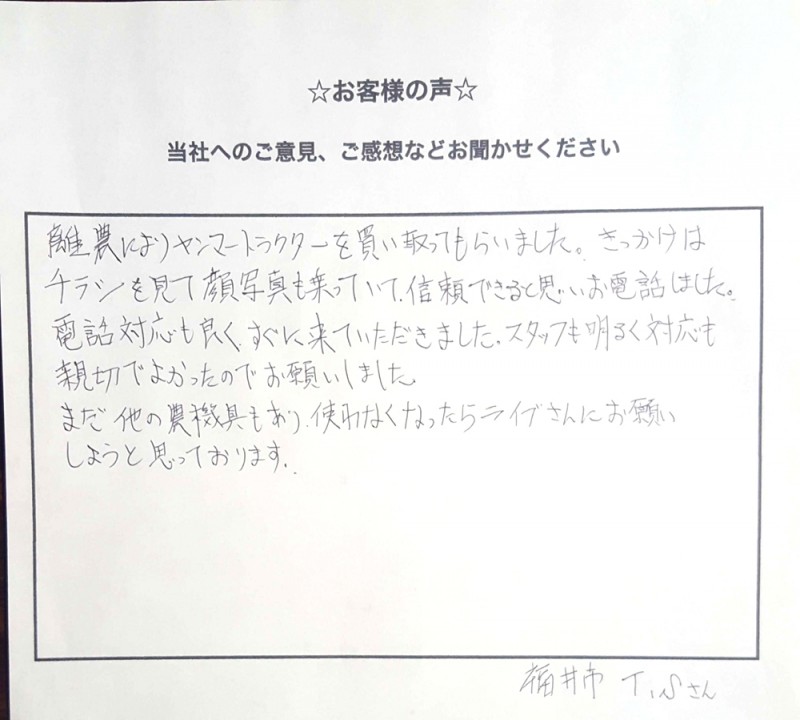 ☆お客様の声☆
当社へのご意見、ご感想などお聞かせください
離農によりヤンマートラクターを買い取ってもらいました。きっかけは
チラシを見て顔写真も乗っていて、信頼できると思いお電話しました。
電話対応も良く、すぐに来ていただきました。スタッフも明るく対応も
親切でよかったのでお願いしました。
まだ他の農機具もあり、使わなくなったらライブさんにお願い
しようと思っております。
福井市 T.Sさん